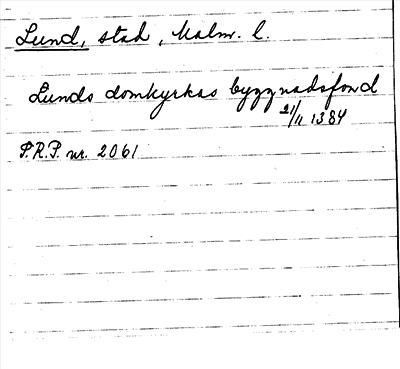 Lund, stad, Malm. l.
Lunds domkyrkas byggnadsfond
21/11 1384
S.R.P. nr. 2061